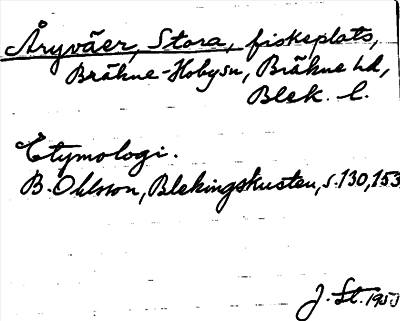 Åryväer, Stora, fiskeplats,
Bräkne-Hobysn, Bräkne hd,
Blek. l.
Etymologi.
B. Ohlsson, Blekingskusten, s. 130, 153
J. St. 1955